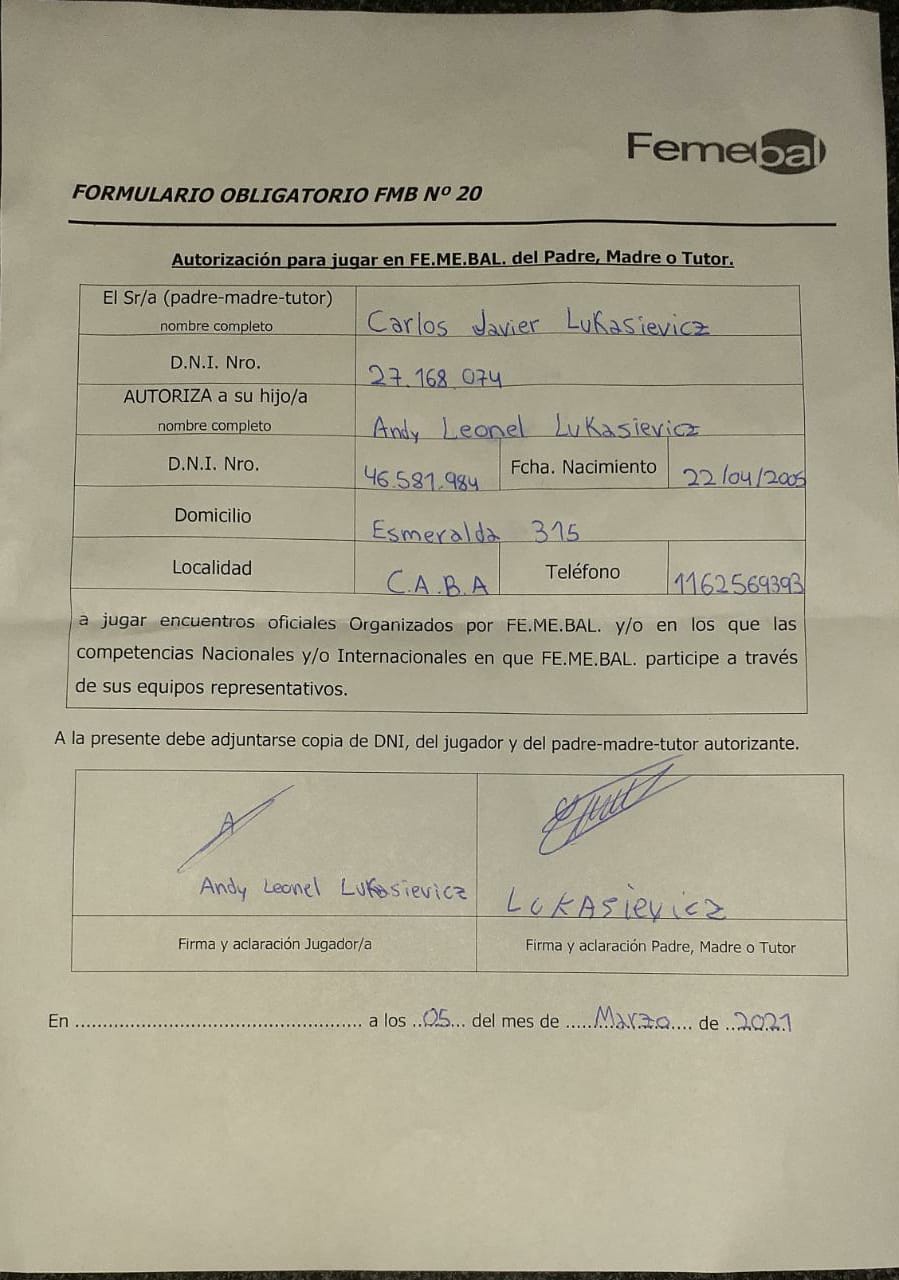 Femebal
FORMULARIO OBLIGATORIO FMB Nº 20
Autorización para jugar en FE.ME.BAL. del Padre, Madre o Tutor.
El Sr/a (padre-madre-tutor)
nombre completo
Carlos Javier Lukasievicz
D.N.I. Nro.
27.168.074
AUTORIZA a su hijo/a
nombre completo
Andy Leonel Lukasievicz
D.N.I. Nro.
46.581.984
Fcha. Nacimiento
22/04/2005
Domicilio
Esmeralda 315
Localidad
C.A.B.A
Teléfono
1162569393
a jugar encuentros oficiales Organizados por FE.ME.BAL. y/o en los que las
competencias Nacionales y/o Internacionales en que FE.ME.BAL. participe a través
de sus equipos representativos.
A la presente debe adjuntarse copia de DNI, del jugador y del padre-madre-tutor autorizante.
Andy Leonel Lukasievicz
LUKASIEVICZ
Firma y aclaración Jugador/a
Firma y aclaración Padre, Madre o Tutor
En ................................................. a los ..05... del mes de .....Marzo.... de ..2021